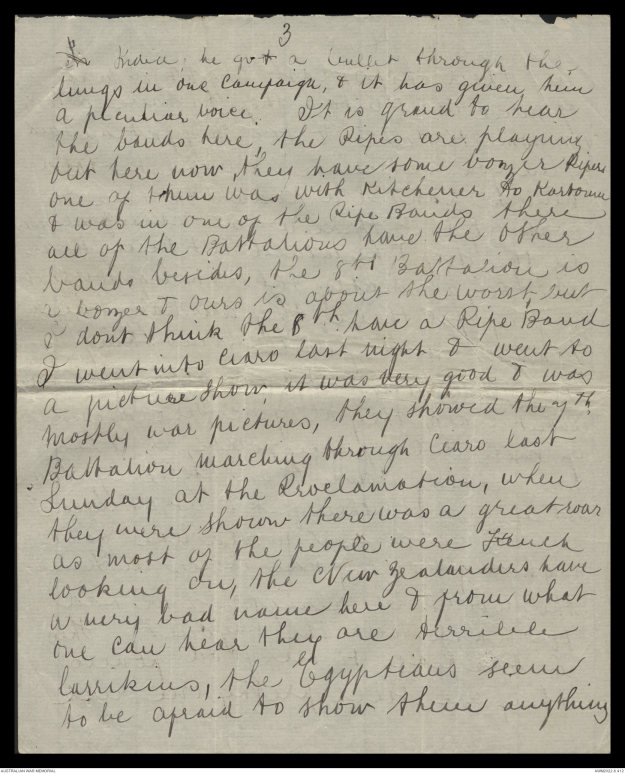 3
In India, he got a bullet through the
lungs in one campaign, & it has given him
a peculiar voice. It is grand to hear
the bands here, the Pipes are playing
out here now, they have some bonzer Pipers
one of them was with Kitchener to Kartoum
& was in one of the Pipe Bands there
all of the Battalions have the other
bands besides, the 8th Battalion is
a bonzer & ours is about the worst, but
I dont think the 8th have a Pipe Band
I went into Ciaro last night & went to
a picture show, it was very good & was
mostly war pictures, they showed the 7th
Battalion marching through Ciaro last
Sunday at the Proclamation, when
they were shown there was a great roar
as most of the people were French
looking on, the New Zealanders have
a very bad name here & from what
one can hear they are terrible
larrikins, the Egyptians seem
to be afraid to show them anything
AUSTRALIAN WAR MEMORIAL